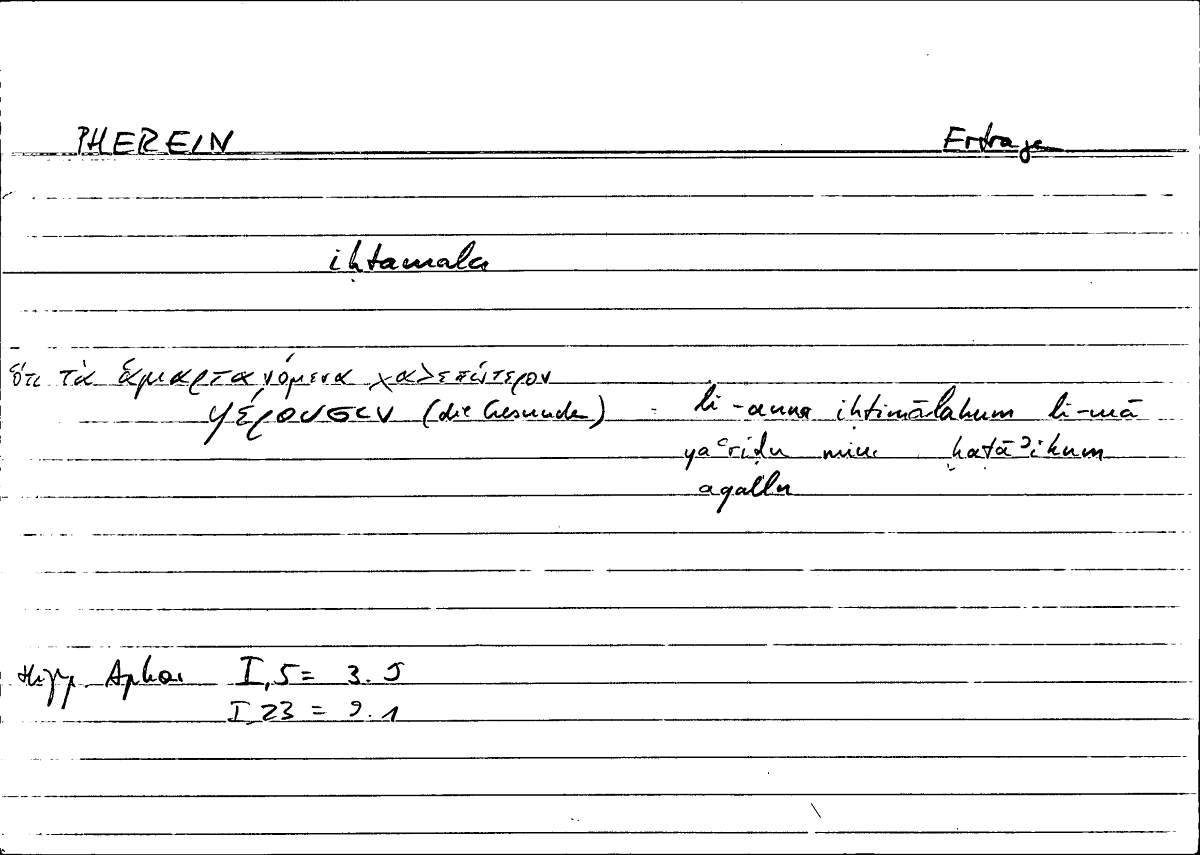 PHEREIN Ertrage
iḥtamala
ὅτι τὰ ἁμαρτανόμενα χαλεπώτερον
φέρουσιν (die Gesunde) - li-anna iḥtimālahum li-mā
yaʿriḍu min ḫaṭāʾihum
aqallu
Hipp. Aphor I,5 = 3.5
I 23 = 9.1